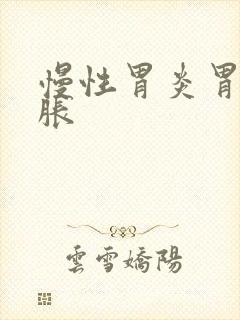 慢性胃炎胃
脹
雲雪嬌陽